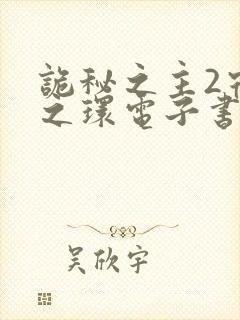 詭秘之主2
之環電子書
吴欣宇